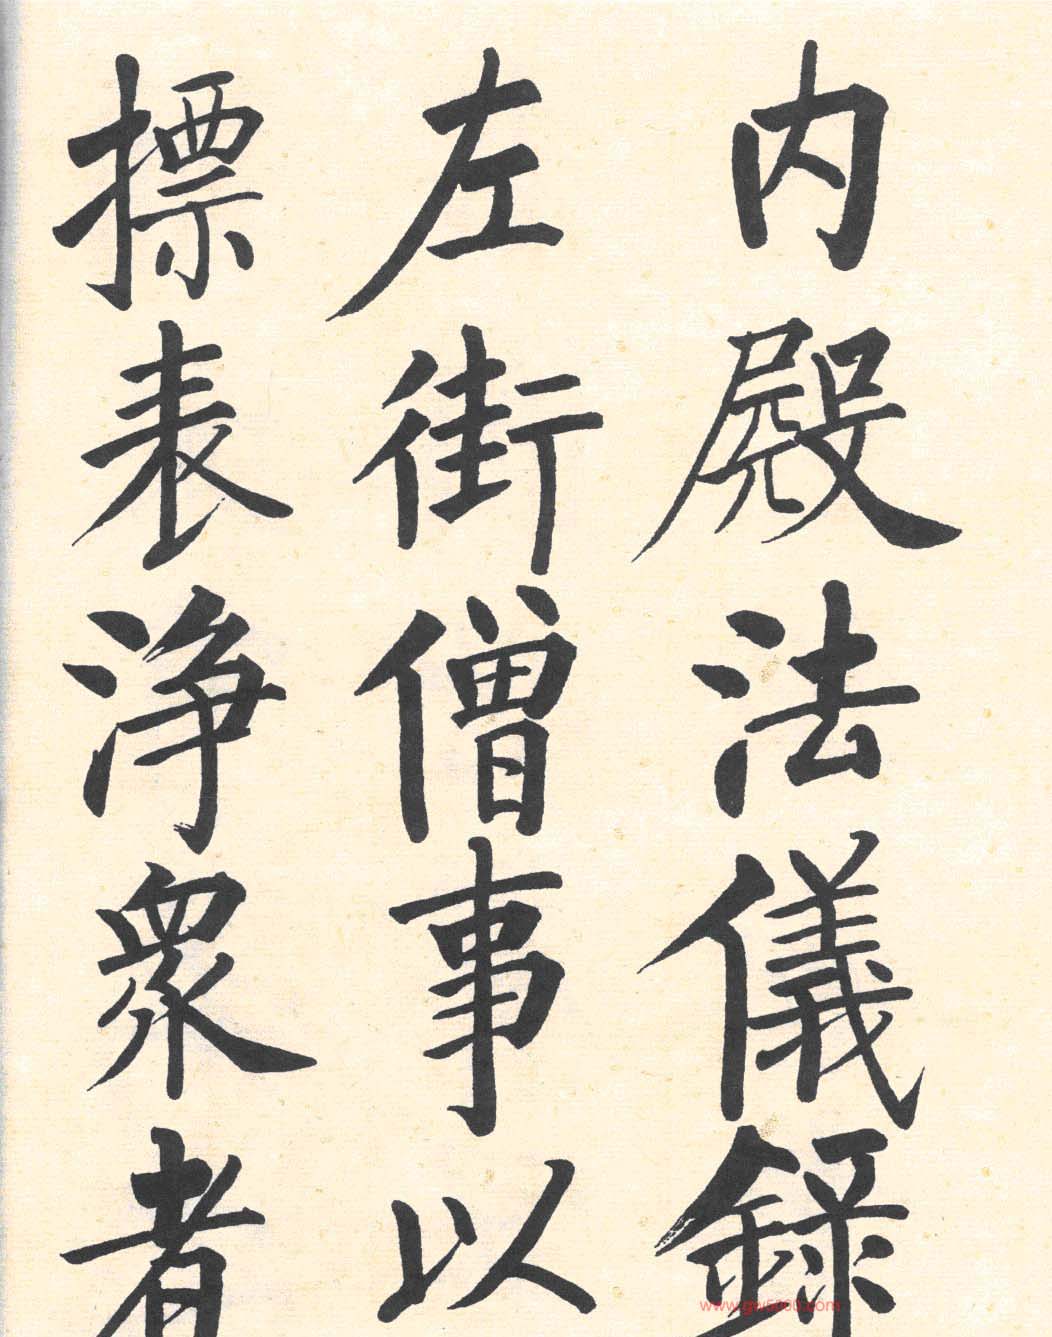 内殿法儀録
左街僧事以
摽表淨衆者
www.gw5000.com